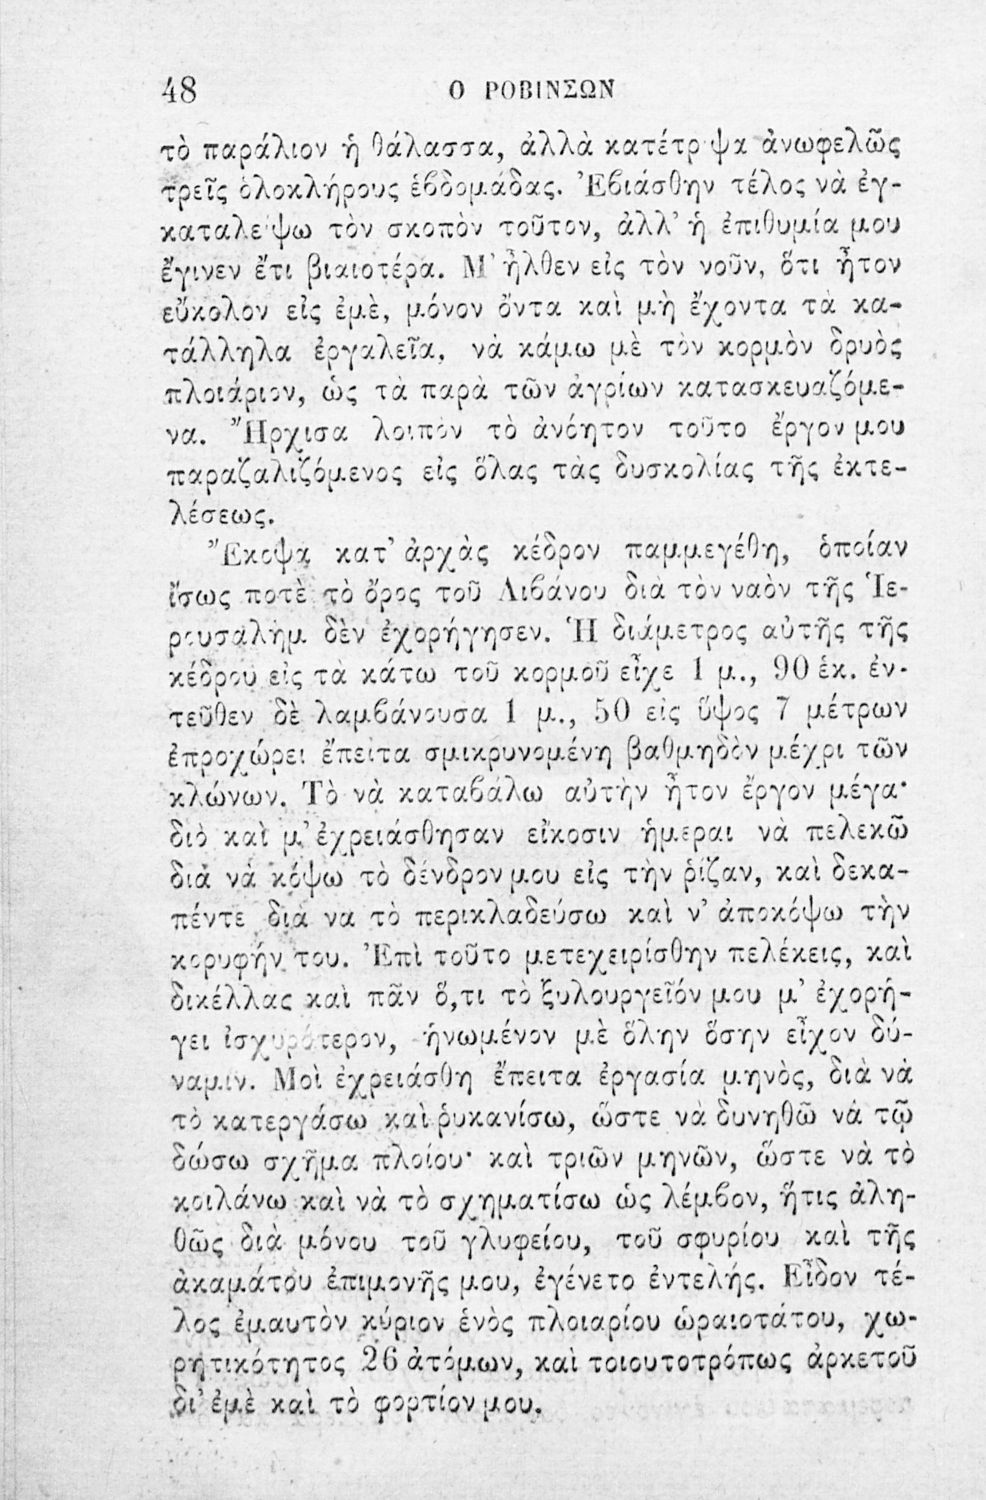 48 Ο ΡΟΒΙΝΣΩΝ
τὸ παράλιον ἡ θάλασσα, ἀλλὰ κατέτρ ψα ἀνωφελῶς
τρεῖς ὁλοκλήρους ἑβδομάδας. Ἐβιάσθην τέλος νὰ ἐγ-
καταλείψω τὸν σκοπὸν τοῦτον, ἀλλ’ ἡ ἐπιθυμία μου
ἔγινεν ἔτι βιαιοτέρα. Μ’ ἦλθεν εἰς τὸν νοῦν, ὅτι ἦτον
εὔκολον εἰς ἐμὲ, μόνον ὄντα καὶ μὴ ἔχοντα τὰ κα-
τάλληλα ἐργαλεῖα, νὰ κάμω μὲ τὸν κορμὸν δρυὸς
πλοιάριον, ὡς τὰ παρὰ τῶν ἀγρίων κατασκευαζόμε-
να. Ἤρχισα λοιπὸν τὸ ἀνόητον τοῦτο ἔργον μου
παραζαλιζόμενος εἰς ὅλας τὰς δυσκολίας τῆς ἐκτε-
λέσεως.
Ἔκοψα κατ’ ἀρχὰς κέδρον παμμεγέθη, ὁποίαν
ἴσως ποτὲ τὸ ὄρος τοῦ Λιβάνου διὰ τὸν ναὸν τῆς Ἱε-
ρουσαλὴμ δὲν ἐχορήγησεν. Ἡ διάμετρος αὐτῆς τῆς
κέδρου εἰς τὰ κάτω τοῦ κορμοῦ εἶχε 1 μ., 90 ἑκ. ἐν-
τεῦθεν δὲ λαμβάνουσα 1 μ., 50 εἰς ὕψος 7 μέτρων
ἐπροχώρει ἔπειτα σμικρυνομένη βαθμηδὸν μέχρι τῶν
κλώνων. Τὸ νὰ καταβάλω αὐτὴν ἦτον ἔργον μέγα·
διὸ καὶ μ’ ἐχρειάσθησαν εἴκοσιν ἡμέραι νὰ πελεκῶ
διὰ νὰ κόψω τὸ δένδρον μου εἰς τὴν ῥίζαν, καὶ δεκα-
πέντε διὰ να τὸ περικλαδεύσω καὶ ν’ ἀποκόψω τὴν
κορυφήν του. Ἐπὶ τοῦτο μετεχειρίσθην πελέκεις, καὶ
δικέλλας καὶ πᾶν ὅ,τι τὸ ξυλουργεῖόν μου μ’ ἐχορή-
γει ἰσχυρότερον, ἡνωμένον μὲ ὅλην ὅσην εἶχον δύ-
ναμιν. Μοὶ ἐχρειάσθη ἔπειτα ἐργασία μηνὸς, διὰ νὰ
τὸ κατεργάσω καὶ ῥυκανίσω, ὥστε νὰ δυνηθῶ νὰ τῷ
δώσω σχῆμα πλοίου· καὶ τριῶν μηνῶν, ὥστε νὰ τὸ
κοιλάνω καὶ νὰ τὸ σχηματίσω ὡς λέμβον, ἥτις ἀλη-
θῶς διὰ μόνου τοῦ γλυφείου, τοῦ σφυρίου καὶ τῆς
ἀκαμάτου ἐπιμονῆς μου, ἐγένετο ἐντελής. Εἶδον τέ-
λος ἐμαυτὸν κύριον ἑνὸς πλοιαρίου ὡραιοτάτου, χω-
ρητικότητος 26 ἀτόμων, καὶ τοιουτοτρόπως ἀρκετοῦ
δι’ ἐμὲ καὶ τὸ φορτίον μου.